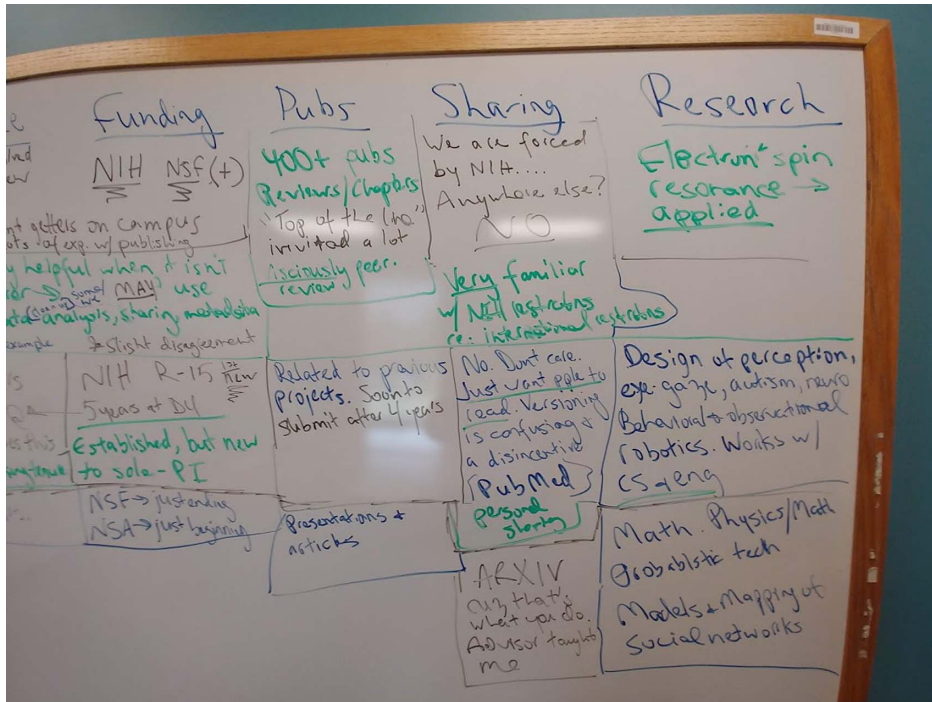 Funding
NIH NSF (+)
getters on campus
of exp. w/ publishing
helpful when it isn't
MAY use
analysis, sharing, methods
example
Slight disagreement
NIH R-15 1st new
5 years at DU
Established, but new
to sole-PI
NSF → just ending
NSA → just beginning
Pubs
400+ pubs
Reviews/Chapters
"Top of the line"
invited a lot
peer.
review
Related to previous
projects. Soon to
submit after 4 years
Presentations +
articles
Sharing
We are forced
by NIH....
Anywhere else?
NO
Very familiar
w/ NIH
re: international
No. Dont care.
Just want pple to
read. Versioning
is confusing +
a disincentive
(PubMed)
personal
sharing
ARXIV
cuz that's
what you do.
Advisor taught
me
Research
Electron spin
resorance →
applied
Design of perception,
eye-gaze, autism, neuro
Behavioral + observational
robotics. Works w/
CS + eng
Math. Physics/Math
Probablistic tech
Models + Mapping of
social networks